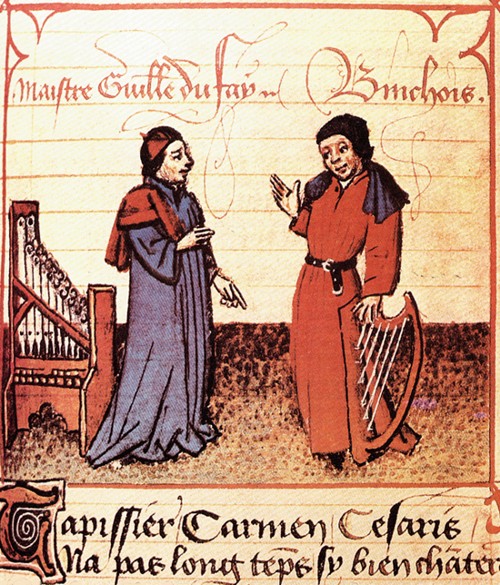 Maistre Guille du fay Binchois.
Tapissier Carmen Cesaris
Na pas long tēps sy bien chāter